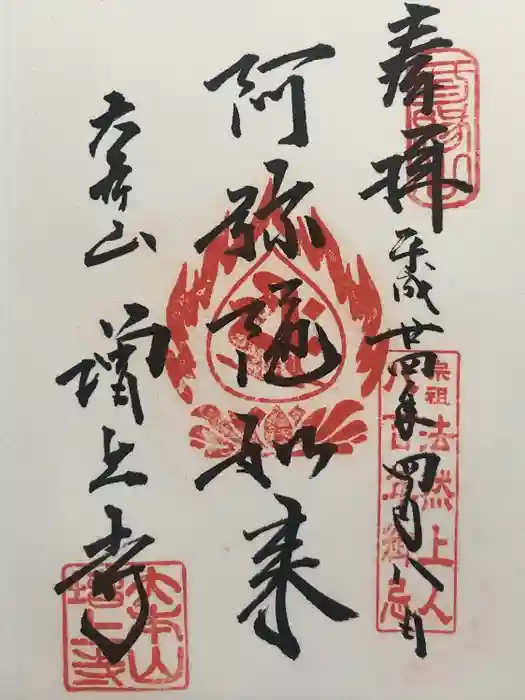 奉拝
平成廿四年四月八日
宗祖法然上人
八百年御忌
阿弥陀如来
大本山 増上寺
大本山
増上寺